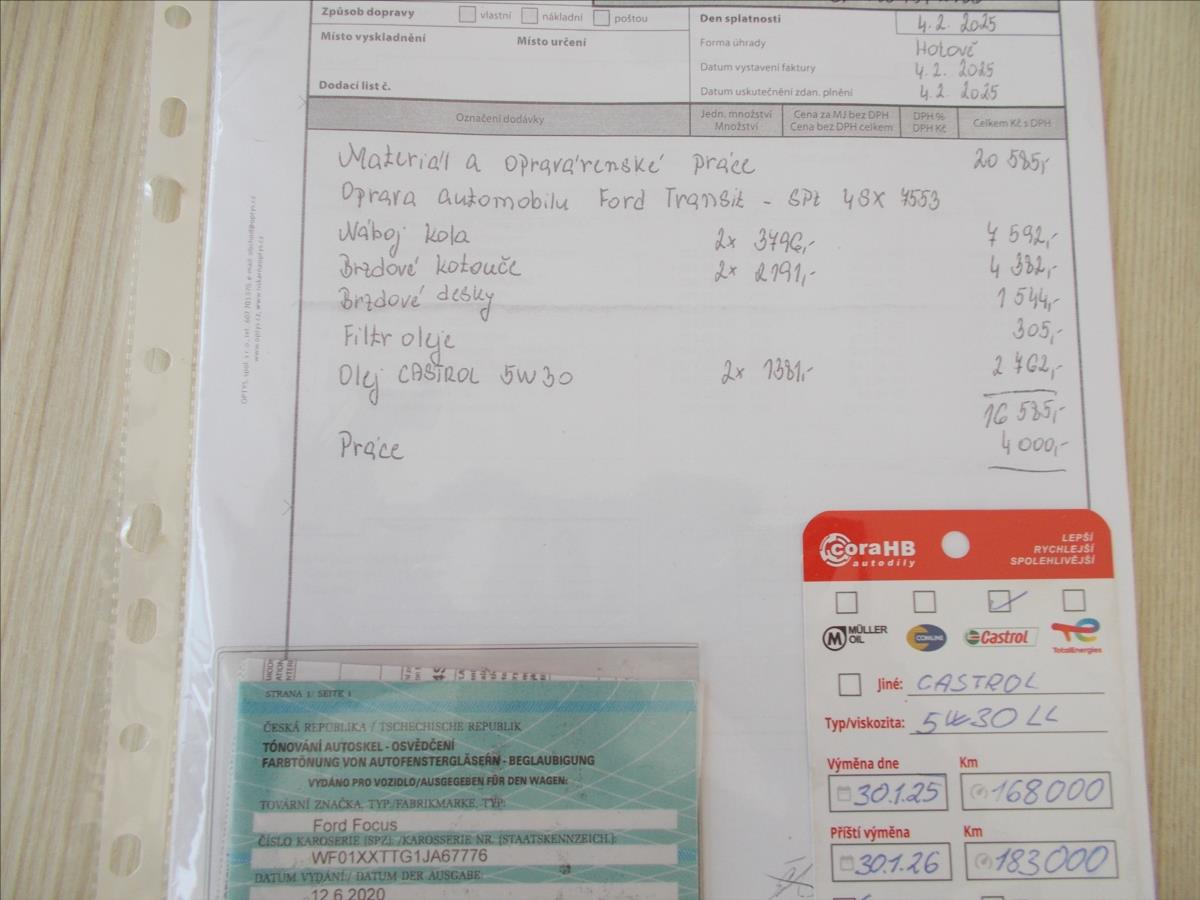 Způsob dopravy vlastní nákladní poštou
Místo vyskladnění Místo určení
Dodací list č.
Den splatnosti 4.2. 2025
Forma úhrady Hotově
Datum vystavení faktury 4.2. 2025
Datum uskutečnění zdan. plnění 4.2. 2025
Označení dodávky Jedn. množství Cena za MJ bez DPH DPH % Celkem Kč s DPH
Množství Cena bez DPH celkem DPH Kč
Materiál a opravárenské práce 20 585,-
Oprava automobilu Ford Transit - SPZ 4SX 7553
Náboj kola 2x 3796,- 7 592,-
Brzdové kotouče 2x 2191,- 4 382,-
Brzdové desky 1 544,-
Filtr oleje 305,-
Olej CASTROL 5W30 2x 1381,- 2 762,-
16 585,-
Práce 4 000,-
coraHB
autodíly
LEPŠÍ
RYCHLEJŠÍ
SPOLEHLIVĚJŠÍ
MÜLLER
OIL
COMLINE
Castrol
TotalEnergies
Jiné: CASTROL
Typ/viskozita: 5W30 LL
Výměna dne Km
30.1.25 168000
Příští výměna Km
30.1.26 183000
STRANA 1/ SEITE 1
ČESKÁ REPUBLIKA / TSCHECHISCHE REPUBLIK
TÓNOVÁNÍ AUTOSKEL - OSVĚDČENÍ
FARBTÖNUNG VON AUTOFENSTERGLÄSERN - BEGLAUBIGUNG
VYDÁNO PRO VOZIDLO/AUSGEGEBEN FÜR DEN WAGEN:
TOVÁRNÍ ZNAČKA, TYP/FABRIKMARKE, TYP:
Ford Focus
ČÍSLO KAROSERIE (SPZ): /KAROSSERIE NR. (STAATSKENNZEICH.):
WF01XXTTG1JA67776
DATUM VYDÁNÍ/ DATUM DER AUSGABE:
12.6.2020